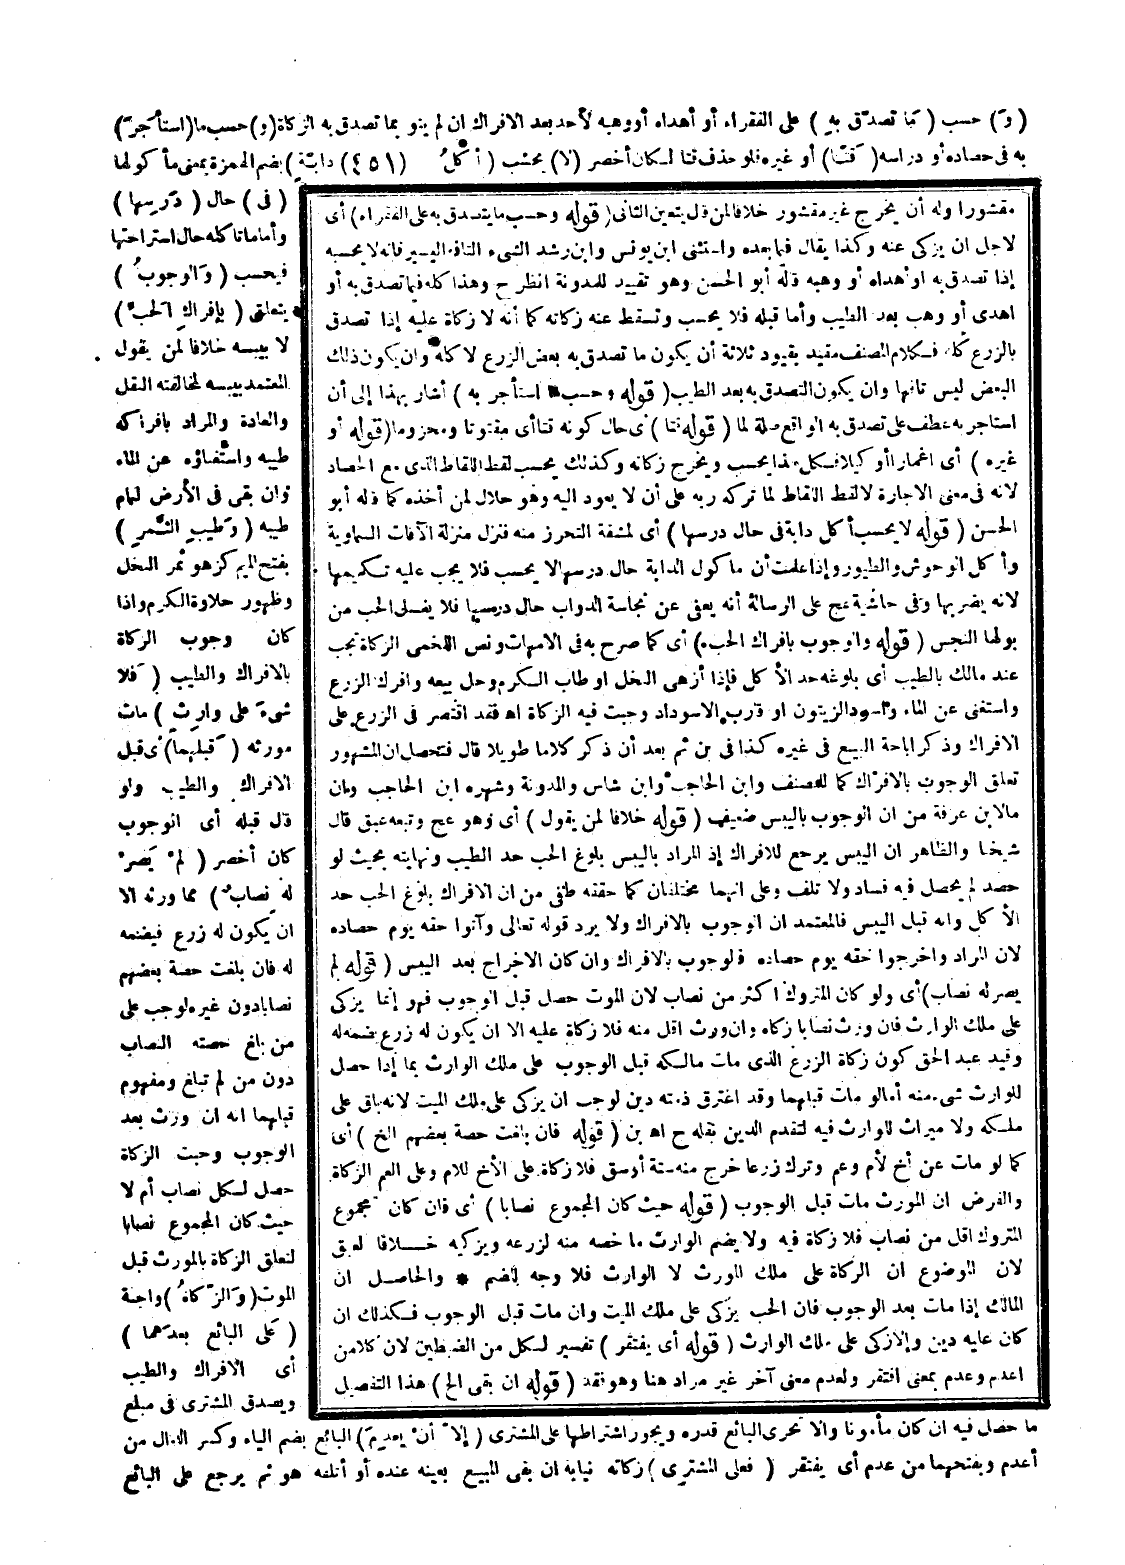 (و) حسب (ما تصدق به) على الفقراء أو أهداه أو وهبه لأحد بعد الافراك ان لم ينو بما تصدق به الزكاة (و) حسب ما (استأجر)
به فى حصاده أو دراسه (قتا) أو غيره فلو حذف قتا لكان أخصر (لا) يحسب (أكل (٤٥١) دابة) بضم الهمزة بمعنى مأكولها
(فى) حال (درسها)
وأما ما تأكله حال استراحتها
فيحسب (والوجوب)
يتعلق (بإفراك الحب)
لا بيبسه خلافا لمن يقول
المعتمد يبسه لمخالفته النقل
والعادة والمراد بافراكه
طيبه واستغناؤه عن الماء
وان بقى فى الأرض لتمام
طيبه (وطيب الثمر)
بفتح الميم كزهو ثمر النخل
وظهور حلاوة الكرم واذا
كان وجوب الزكاة
بالافراك والطيب (فلا
شىء على وارث) مات
مورثه (قبلهما) أى قبل
الافراك والطيب ولو
قال قبله أى الوجوب
كان أخصر (لم يصر
له نصاب) مما ورثه الا
ان يكون له زرع فيضمه
له فان بلغت حصة بعضهم
نصابا دون غيره لوجب على
من بلغ حصته النصاب
دون من لم تبلغ ومفهوم
قبلهما انه ان ورث بعد
الوجوب وجبت الزكاة
حصل لكل نصاب أم لا
حيث كان المجموع نصابا
لتعلق الزكاة بالمورث قبل
الموت (والزكاة) واجبة
(على البائع بعدهما)
أى الافراك والطيب
ويصدق المشترى فى مبلغ
مقشورا وله أن يخرج غير مقشور خلافا لمن قال يتعين الثانى (قوله وحسب ما يتصدق به على الفقراء) أى
لاجل ان يزكى عنه وكذا يقال فيما بعده واستثنى ابن يونس وابن رشد الشىء التافه اليسير فانه لا يحسبه
إذا تصدق به او أهداه أو وهبه قاله أبو الحسن وهو تقييد للمدونة انظر ح وهذا كله فيما تصدق به أو
اهدى أو وهب بعد الطيب وأما قبله فلا يحسب وتسقط عنه زكاته كما أنه لا زكاة عليه إذا تصدق
بالزرع كله فكلام المصنف مقيد بقيود ثلاثة أن يكون ما تصدق به بعض الزرع لا كله وان يكون ذلك
البعض ليس تافها وان يكون التصدق به بعد الطيب (قوله وحسب ما استأجر به) أشار بهذا إلى أن
استاجر به عطف على تصدق به الواقع صلة لما (قوله قتا) أى حال كونه قتا أى مقتوتا ومحزوما (قوله أو
غيره) أى اغمارا أو كيلا فكل هذا يحسب ويخرج زكاته وكذلك يحسب لقط اللقاط الذى مع الحصاد
لانه فى معنى الاجارة لا لقط اللقاط لما تركه ربه على أن لا يعود اليه وهو حلال لمن أخذه كما قاله أبو
الحسن (قوله لا يحسب أكل دابة فى حال درسها) أى لمشقة التحرز منه فنزل منزلة الآفات السماوية
وأكل الوحوش والطيور وإذا علمت أن ما كول الدابة حال درسها لا يحسب فلا يجب عليه تكميمها
لانه يضربها وفى حاشية عج على الرسالة أنه يعفى عن نجاسة الدواب حال درسها فلا يغسل الحب من
بولها النجس (قوله والوجوب بافراك الحب) أى كما صرح به فى الامهات ونص اللخمى الزكاة تجب
عند مالك بالطيب أى بلوغه حد الأكل فإذا أزهى النخل او طاب الكرم وحل بيعه وافرك الزرع
واستغنى عن الماء واسود الزيتون او قارب الاسوداد وجبت فيه الزكاة اه فقد اقتصر فى الزرع على
الافراك وذكر اباحة البيع فى غيره كذا فى بن ثم بعد أن ذكر كلاما طويلا قال فتحصل ان المشهور
تعلق الوجوب بالافراك كما للمصنف وابن الحاجب وابن شاس والمدونة وشهره ابن الحاجب وان
مالابن عرفة من ان الوجوب باليبس ضعيف (قوله خلافا لمن يقول) أى وهو عج وتبعه عبق قال
شيخنا والظاهر ان اليبس يرجع للافراك إذ المراد باليبس بلوغ الحب حد الطيب ونهايته بحيث لو
حصد لم يحصل فيه فساد ولا تلف وعلى انهما مختلفان كما حققه طفى من ان الافراك بلوغ الحب حد
الأكل وانه قبل اليبس فالمعتمد ان الوجوب بالافراك ولا يرد قوله تعالى وآتوا حقه يوم حصاده
لان المراد واخرجوا حقه يوم حصاده فالوجوب بالافراك وان كان الاخراج بعد اليبس (قوله لم
يصر له نصاب) أى ولو كان المتروك اكثر من نصاب لان الموت حصل قبل الوجوب فهو إنما يزكى
على ملك الوارث فان ورث نصابا زكاه وان ورث اقل منه فلا زكاة عليه الا ان يكون له زرع ضمه له
وقيد عبد الحق كون زكاة الزرع الذى مات مالكه قبل الوجوب على ملك الوارث بما إذا حصل
للوارث شىء منه أما لو مات قبلهما وقد اغترق ذمته دين لوجب ان يزكى على ملك الميت لانه باق على
ملكه ولا ميراث للوارث فيه لتقدم الدين نقله ح اه بن (قوله فان بلغت حصة بعضهم الخ) أى
كما لو مات عن أخ لأم وعم وترك زرعا خرج منه ستة أوسق فلا زكاة على الأخ للام وعلى العم الزكاة
والفرض ان المورث مات قبل الوجوب (قوله حيث كان المجموع نصابا) أى فان كان مجموع
المتروك اقل من نصاب فلا زكاة فيه ولا يضم الوارث ما خصه منه لزرعه ويزكيه خلافا لعبق
لان الموضوع ان الزكاة على ملك المورث لا الوارث فلا وجه للضم * والحاصل ان
المالك إذا مات بعد الوجوب فان الحب يزكى على ملك الميت وان مات قبل الوجوب فكذلك ان
كان عليه دين وإلا زكى على ملك الوارث (قوله أى يفتقر) تفسير لكل من الضبطين لان كلا من
اعدم وعدم بمعنى افتقر ولعدم معنى آخر غير مراد هنا وهو فقد (قوله ان بقى الخ) هذا التفصيل
ما حصل فيه ان كان مأمونا والا تحرى البائع قدره ويجوز اشتراطها على المشترى (إلا أن يعدم) البائع بضم الياء وكسر الدال من
أعدم وبفتحهما من عدم أى يفتقر (فعلى المشترى) زكاته نيابة ان بقى المبيع بعينه عنده أو أتلفه هو ثم يرجع على البائع